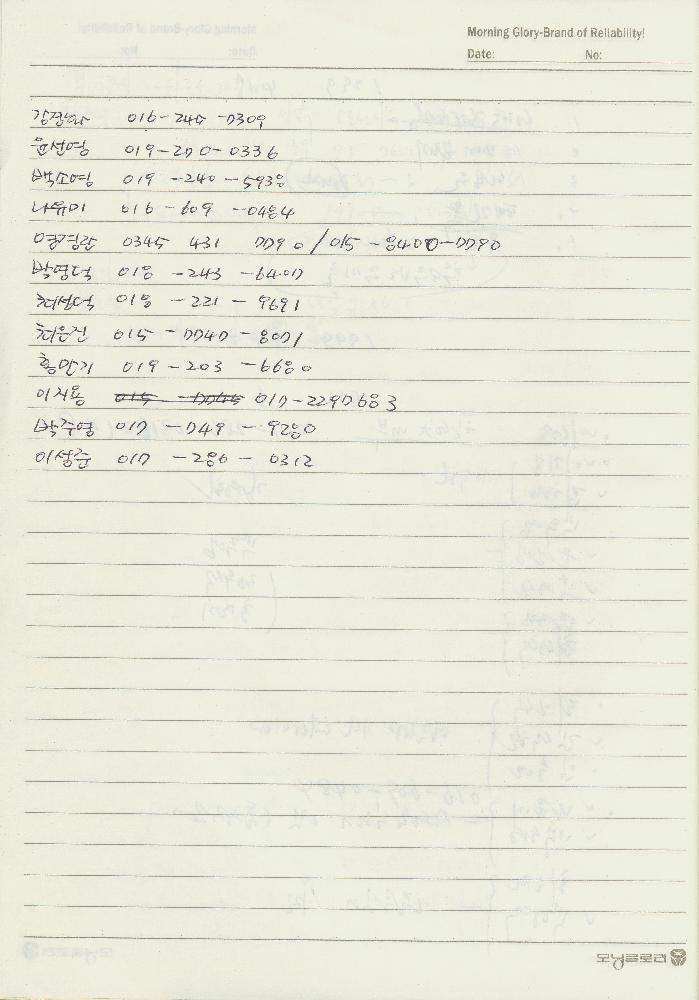 Morning Glory-Brand of Reliability!
Date: No:
김정화 016-245-7309
윤선영 019-270-0336
백소영 019-240-5938
나유미 016-609-0484
0345 431 7790/015-8400-7790
박영덕 018-243-6407
최성덕 018-221-9691
최은진 015-7740-8071
황만기 019-203-6680
이지용 017-2290683
박주영 017-749-9280
이성준 017-286-0312
모닝글로리